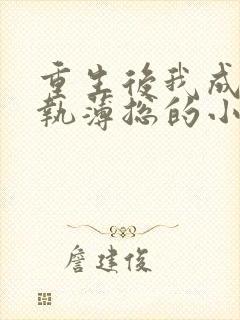 重生後我成
執薄總的小
詹建俊